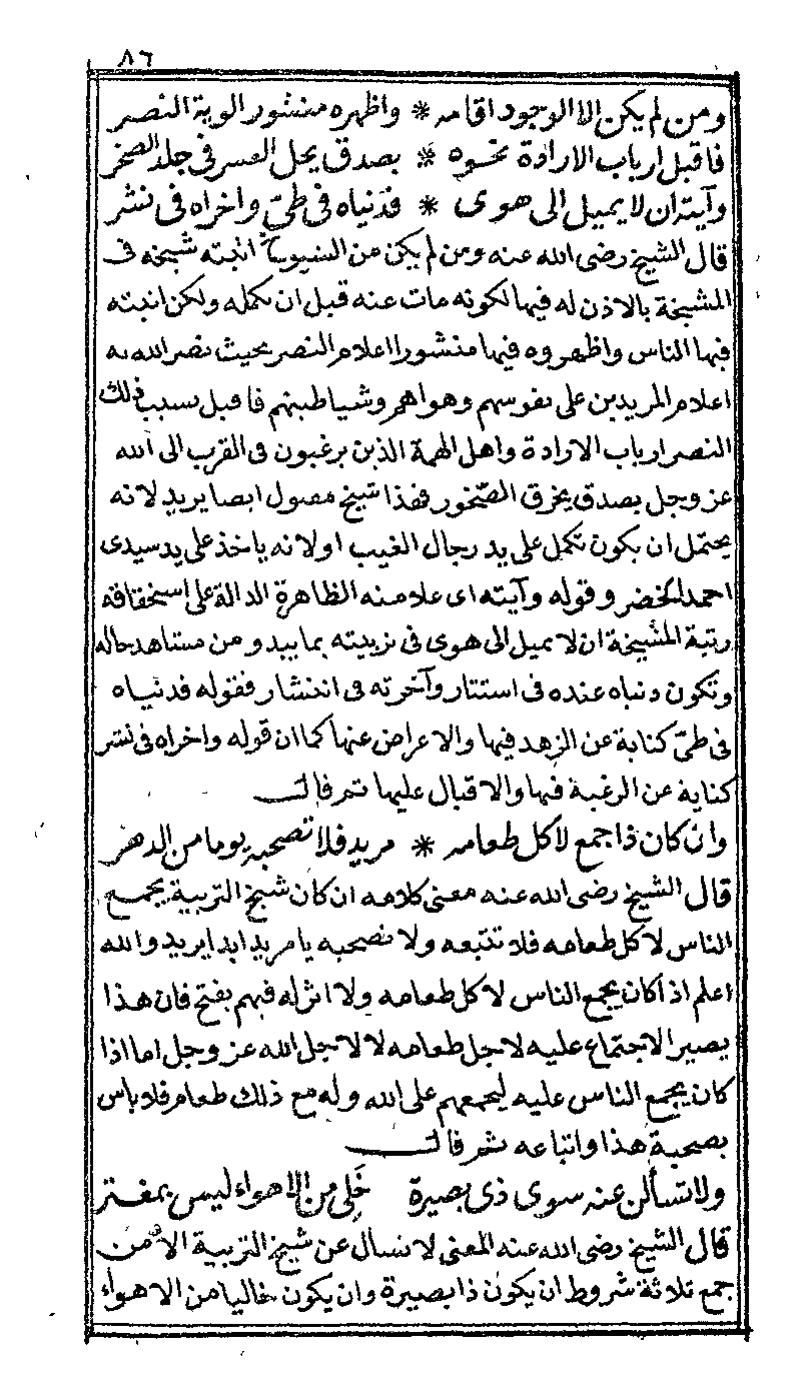 ٨٦
ومن لم يكن الا الوجود اقامه * واظهره منشور الوية النصر
فاقبل ارباب الارادة نحوه * بصدق يحل العسر فى جلد الصخر
وآيته ان لا يميل الى هوى * فدنياه فى طىّ واخراه فى نشر
قال الشيخ رضى الله عنه ومن لم يكن من الشيوخ اثبته شيخه فى
المشيخة بالاذن له فيها لكونه مات عنه قبل ان يكمله ولكن اثبته
فيها الناس واظهروه فيها منشورا اعلام النصر بحيث نصر الله به
اعلام المريدين على نفوسهم وهواهم وشياطينهم فاقبل بسبب ذلك
النصر ارباب الارادة واهل الهمة الذين يرغبون فى القرب الى الله
عز وجل بصدق يخرق الصّخور فهذا شيخ مقبول ايضا يريد لانه
يحتمل ان يكون تكمل على يد رجال الغيب او لانه ياخذ على يد سيدى
احمد الخضر وقوله وآيته اى علامته الظاهرة الدالة على استحقاقه
رتبة المشيخة ان لا يميل الى هوى فى تربيته بما يبدو من مشاهد حاله
وتكون دنياه عنده فى استتار وآخرته فى انتشار فقوله فدنياه
فى طىّ كناية عن الزهد فيها والاعراض عنها كما ان قوله واخراه فى نشر
كناية عن الرغبة فيها والاقبال عليها ثم قال
وان كان ذا جمع لاكل طعامه * مريد فلا تصحبه يوما من الدهر
قال الشيخ رضى الله عنه معنى كلامه ان كان شيخ التربية يجمع
الناس لاكل طعامه فلا تتبعه ولا تصحبه يا مريد ابدا يريد والله
اعلم اذا كان يجمع الناس لاكل طعامه ولا اثر له فيهم بفتح فان هذا
يصير الاجتماع عليه لاجل طعامه لا لاجل الله عز وجل اما اذا
كان يجمع الناس عليه ليجمعهم على الله وله مع ذلك طعام فلا باس
بصحبة هذا واتباعه ثم قال
ولا تسألن عنه سوى ذى بصيرة خَلى من الاهواء ليس بمغتر
قال الشيخ رضى الله عنه المعنى لا تسال عن شيخ التربية الا من
جمع ثلاثة شروط ان يكون ذا بصيرة وان يكون خاليا من الاهواء